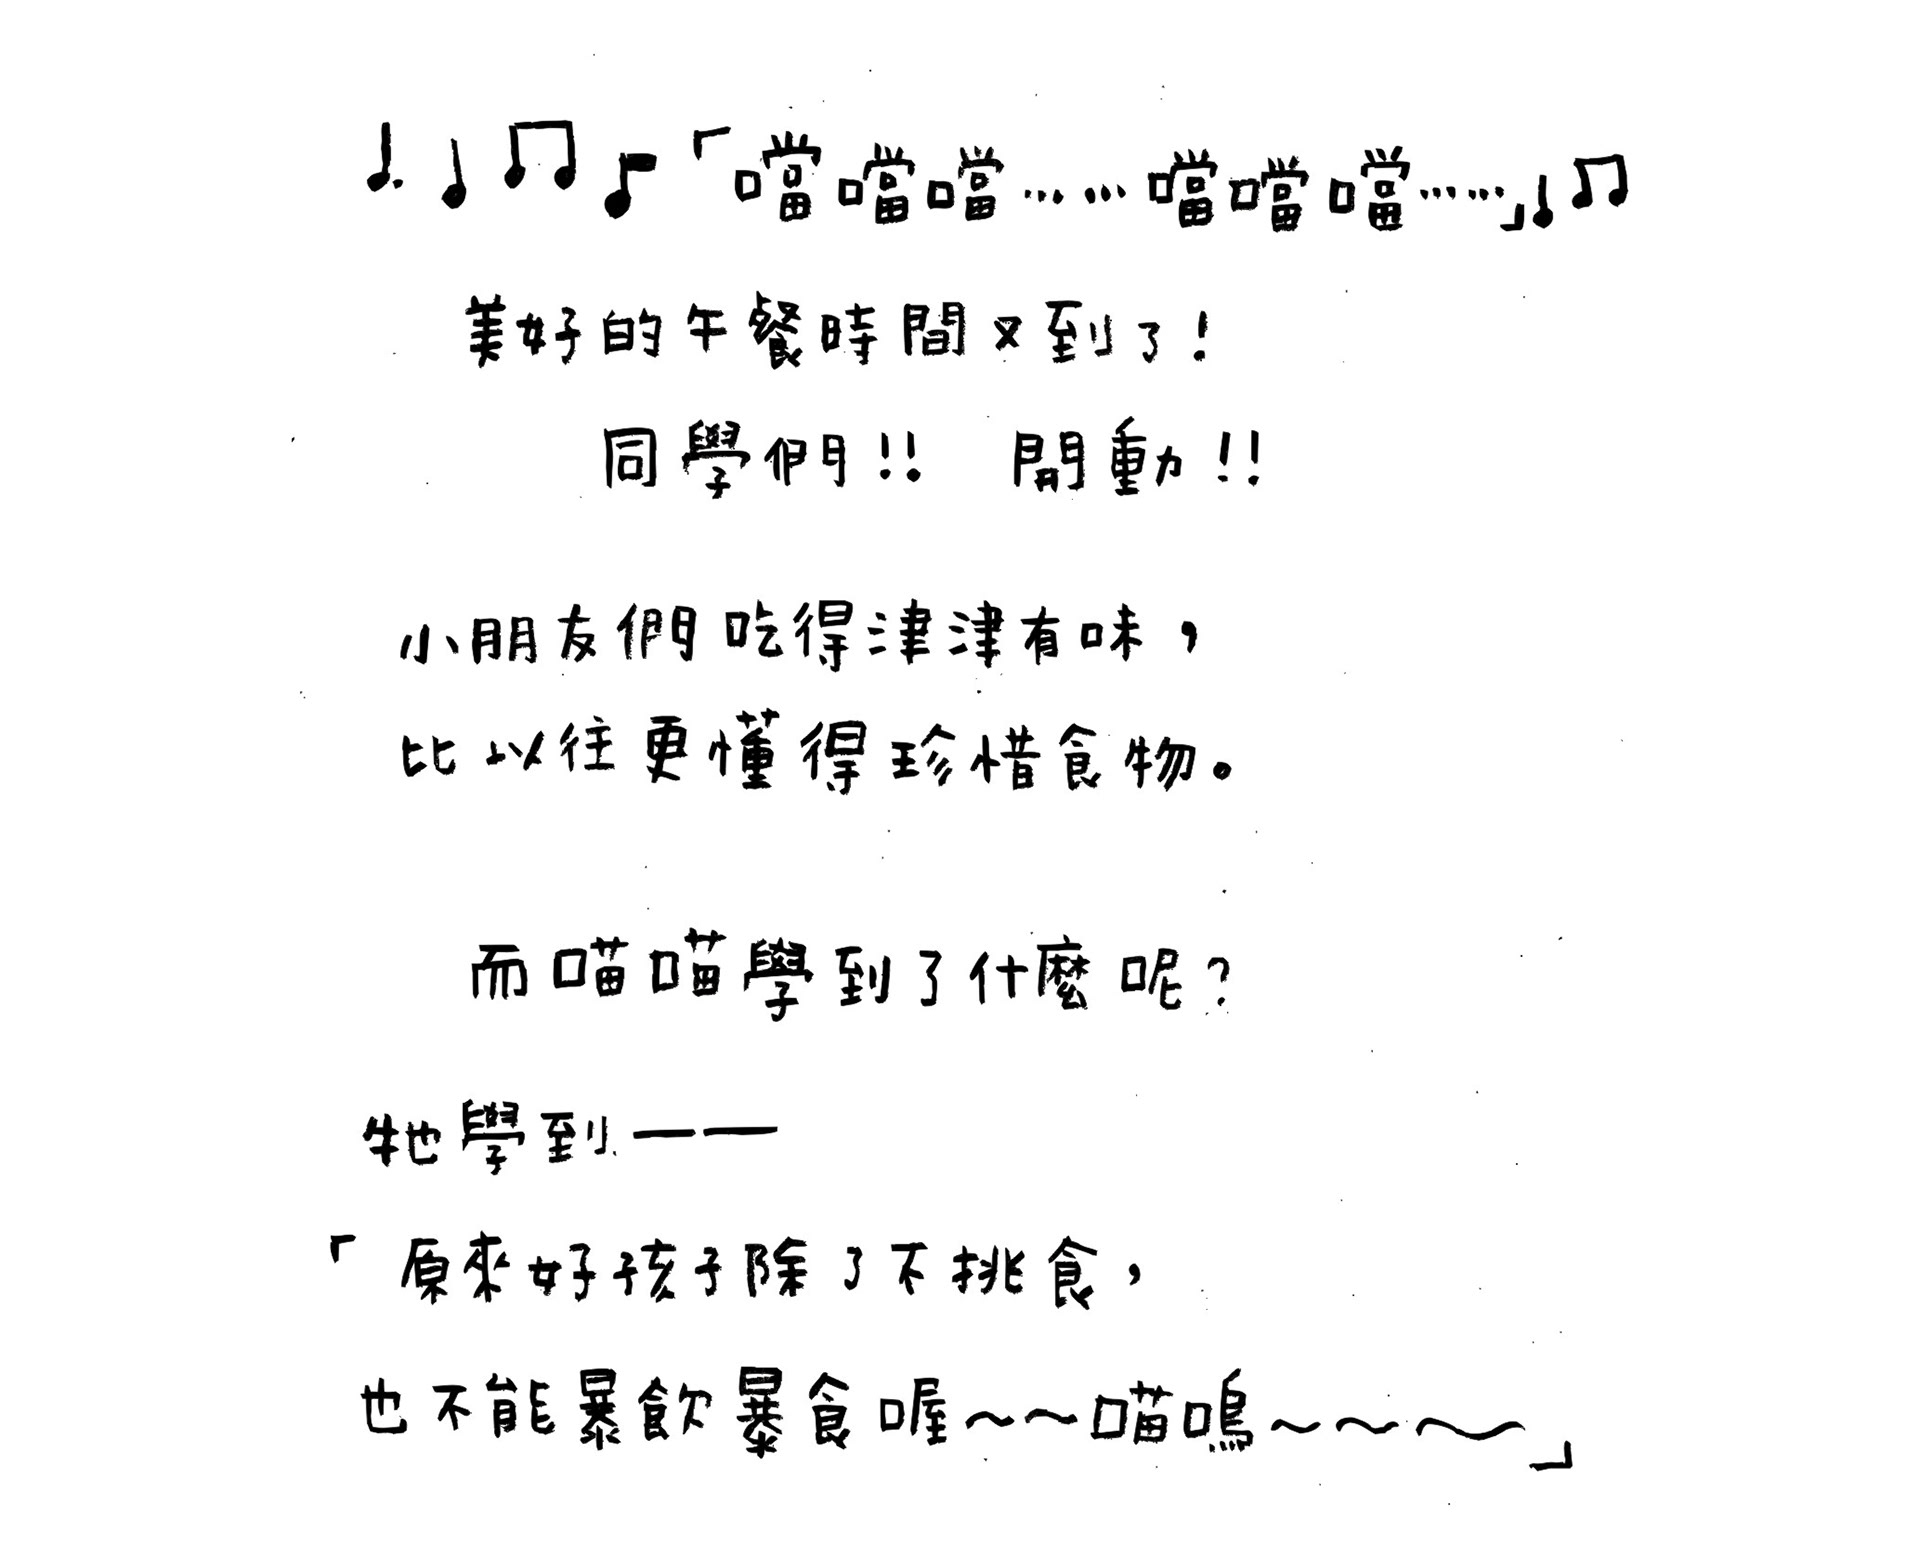 ♩. ♩ ♫ ♪「噹噹噹……噹噹噹……」♩♫
美好的午餐時間又到了！
同學們!! 開動!!
小朋友們吃得津津有味，
比以往更懂得珍惜食物。
而喵喵學到了什麼呢？
牠學到——
「原來好孩子除了不挑食，
也不能暴飲暴食喔～～喵嗚～～～」